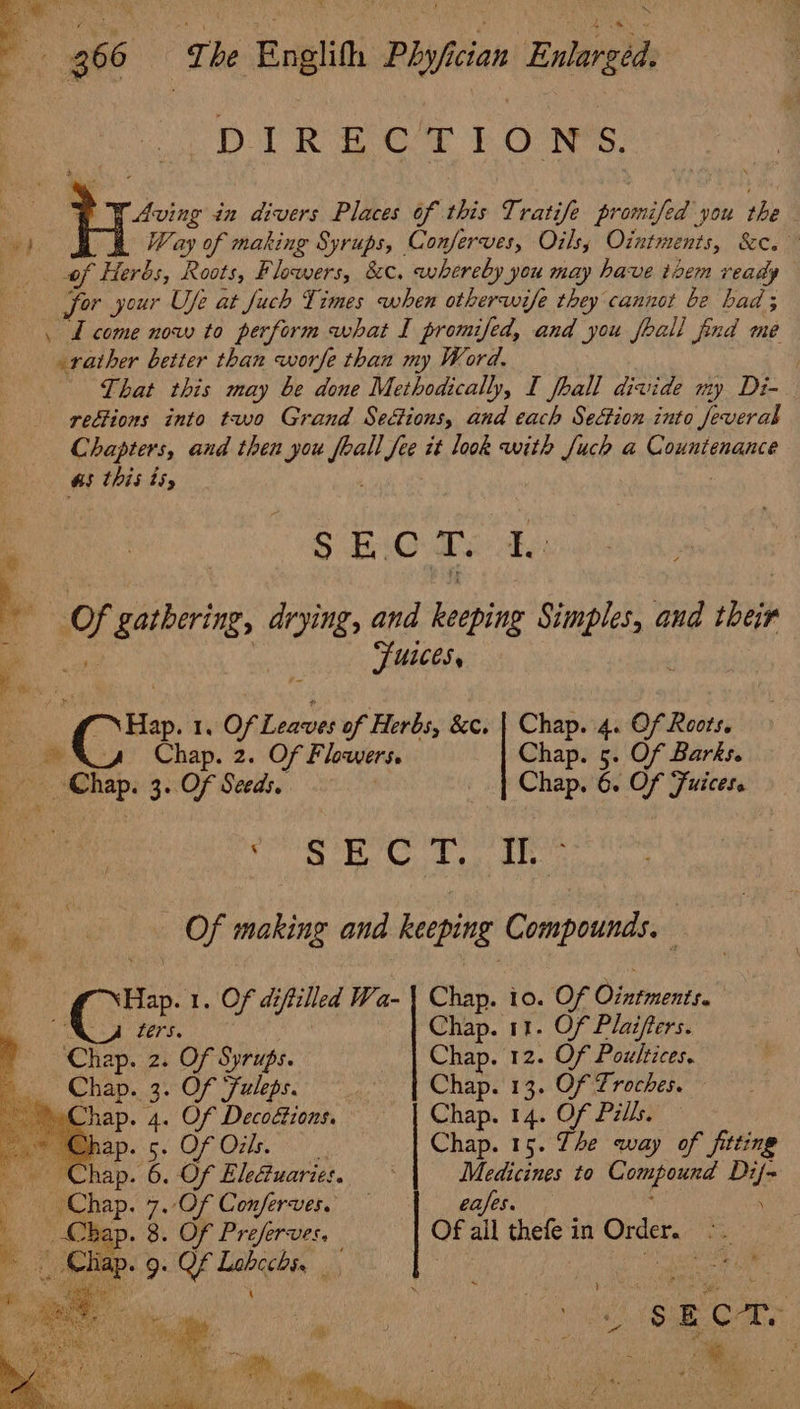 366 The Engliſh Phyſician Enlarged.
DIRECTIONS.
HAving in divers Places of this Tratiſe promiſed you the
Way of making Syrups, Conſerves, Oils, Ointments, &c.
of Herbs, Roots, Flowers, &c. whereby you may have them ready
for your Uſe at ſuch Times when otherwiſe they cannot be had;
I come now to perform what I promiſed, and you ſhall find me
rather better than worſe than my Word.
That this may be done Methodically, I ſhall divide my Di-
rections into two Grand Sections, and each Section into ſeveral
Chapters, and then you ſhall ſee it look with ſuch a Countenance
as this is,
SECT. I.
Of gathering, drying, and keeping Simples, and their
Juices.
CHap. 1. Of Leaves of Herbs, &c.
Chap. 2. Of Flowers.
Chap. 3. Of Seeds.
Chap. 4. Of Roots.
Chap. 5. Of Barks.
Chap. 6. Of Juices.
SECT. II.
Of making and keeping Compounds.
CHap. 1. Of diſtilled Wa-
ters.
Chap. 2. Of Syrups.
Chap. 3. Of Juleps.
Chap. 4. Of Decoctions.
Chap. 5. Of Oils.
Chap. 6. Of Electuaries.
Chap. 7. Of Conſerves.
Chap. 8. Of Preſerves.
Chap. 9. Of Lohochs.
Chap. 10. Of Ointments.
Chap. 11. Of Plaiſters.
Chap. 12. Of Poultices.
Chap. 13. Of Troches.
Chap. 14. Of Pills.
Chap. 15. The way of fitting
Medicines to Compound Diſ-
eaſes.
Of all theſe in Order.
SECT.